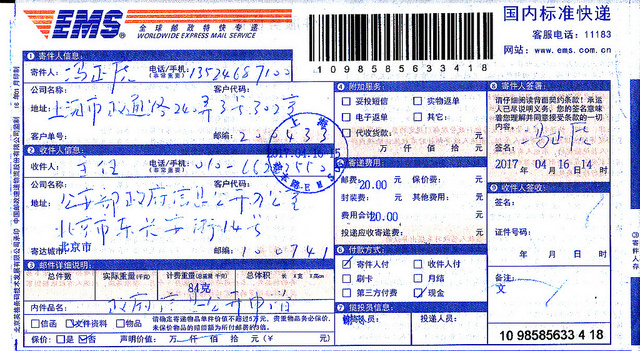 EMS
全球邮政特快专递
WORLDWIDE EXPRESS MAIL SERVICE
国内标准快递
客服电话：11183
网站：www.ems.com.cn
1098585633418
① 寄件人信息：
寄件人：冯正虎 电话/手机：(非常重要) 13524687100
公司名称： 客户代码：
地址：上海市政通路240弄3号302室
客户单号： 邮编：200433
② 收件人信息：
收件人：主任 电话/手机：(非常重要)
公司名称： 客户代码：
地址：公安部政府信息公开办公室
北京市东长安街14号
寄达城市： 北京市 邮编：100741
③ 邮件详细说明：
总件数 实际重量(千克) 计费重量 总体积
84克
内件品名：政府信息公开申请
信函 文件资料 物品
保价：是 否 声明价值： 万 仟 佰 拾 元(¥ 元)
④ 附加服务：
妥投短信 实物返单
电子返单 其它：
代收货款： 元
万 仟 佰 拾 元
上海
2017.04.16-15
⑤ 寄递费用：
邮费：20.00 元 保价费： 元
封装费： 元 其他费用： 元
费用合计：20.00 元
投递应收寄递费： 元
⑥ 付款方式：
寄件人付 收件人付
刷卡 月结
第三方付费 现金
⑦ 揽投员信息：
投递人员：
⑧ 寄件人签署：
请仔细阅读背面契约条款！承运人已尽说明义务，您的签名意味着您理解并同意接受条款的一切内容。
签名：冯正虎
2017 年 04 月 16 日 14 时
⑨ 收件人签收：
签名：
证件号码：
年 月 日 时
备注：
文
10 98585633 4 18